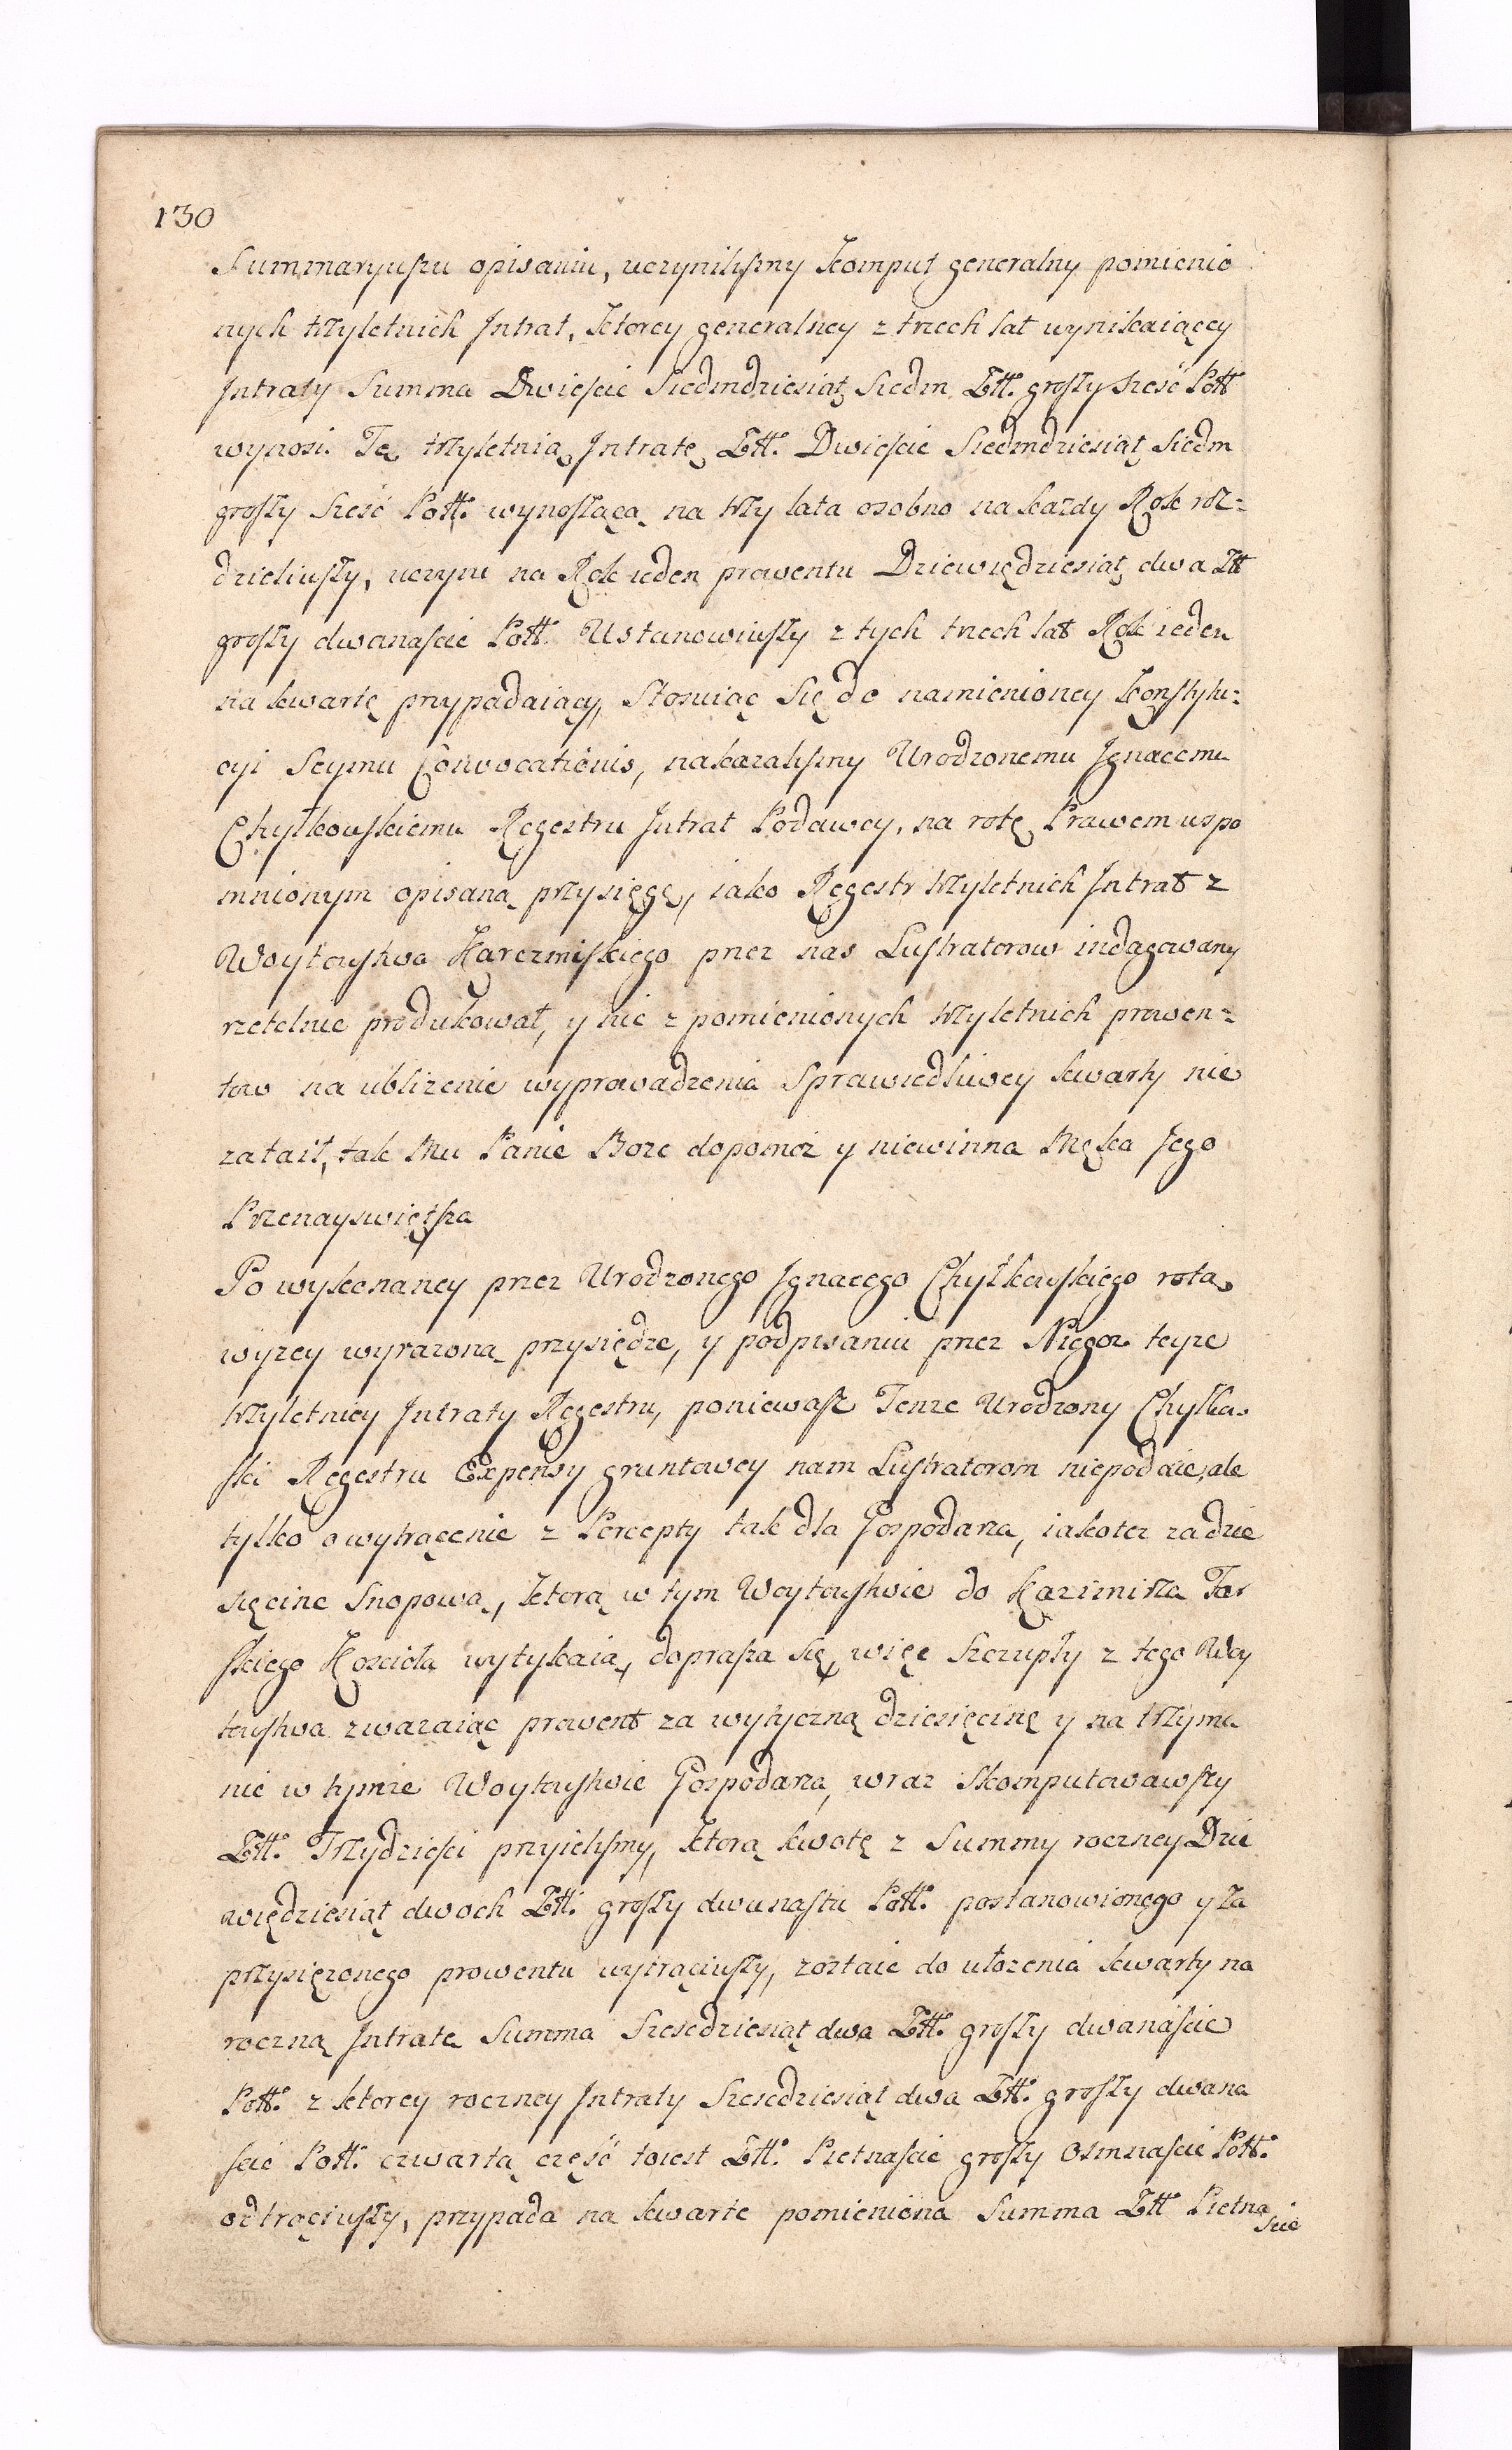 130
Summaryuszu opisaniu, uczyniliszmy Komput generalny pomienio
nych trzyletnich Jntrat, ktorey generalney z trzech lat wynikaiący
Jntraty Summa Dwieście Siedmdziesiąt Siedm Złł. groszy sześć Poll
wynosi. Tę trzyletnią Jntratę Złł. Dwieście Siedmdziesiąt Siedm
groszy sześć Poll. wynoszącą na trzy lata osobno na każdy Rok roz=
dzieliwszy, uczyni na Rok ieden prowentu Dziewiędziesiąt dwa Złł
groszy dwanaście Poll. Ustanowiwszy z tych trzech lat Rok ieden
na kwartę przypadaiący, Stosuiąc Się do namienioney Konstytu=
cyi Seymu Convocationis, nakazaliszmy Urodzonemu Jgnacemu
Chyłkowskiemu Regestru Jntrat Podawcy, na rotę Prawem wspo
mnionym opisaną przysięgę, iako Regestr trzyletnich Jntrat z
Woytowstwa Karczmiskiego przez nas Lustratorow indagowany
rzetelnie produkował, y nic z pomienionych trzyletnich prowen=
tow na ubliżenie wyprowadzenia Sprawiedliwey kwarty nie
zataił, tak Mu Panie Boże dopomoż y niewinna Męka Jego
Przenayswiętsza
Po wykonaney przez Urodzonego Jgnacego Chyłkowskiego rotą
wyżey wyrażoną przysiędze, y podpisaniu przez Niegoż teyże
trzyletniey Jntraty Regestru, poniewasz Tenże Urodzony Chyłkow
ski Regestru Expensy gruntowey nam Lustratorom niepodaie, ale
tylko o wytrącenie z Percepty tak dla Gospodarza, iakotez za dzie
sięcinę Snopową, ktorą w tym Woytowstwie do Kazimirza Far
skiego Kościoła wytykaią, doprasza się, więc Szczupły z tego Woy
towstwa zwazaiąc prowent za wytyczną dziesięcinę y na trzyma
nie w tymze Woytowstwie Gospodarza, wraz Skomputowawszy
Złł. Trzydzieści przyieliszmy, ktorą kwotę z Summy roczney Dzie
więdziesiąt dwoch Złł. groszy dwunastu Poll. postanowionego y za
przysięzonego prowentu wytrąciwszy, zostaie do ułozenia kwarty na
roczną Jntratę Summa Sześćdziesiąt dwa Złł. groszy dwanaście
Poll. z ktorey roczney Jntraty Sześćdziesiąt dwa Złł. groszy dwana
ście Poll. czwartą część toiest Złł. Pietnaście groszy Osmnaście Poll.
odtrąciwszy, przypada na kwartę pomieniona Summa Złł Pietna
ście